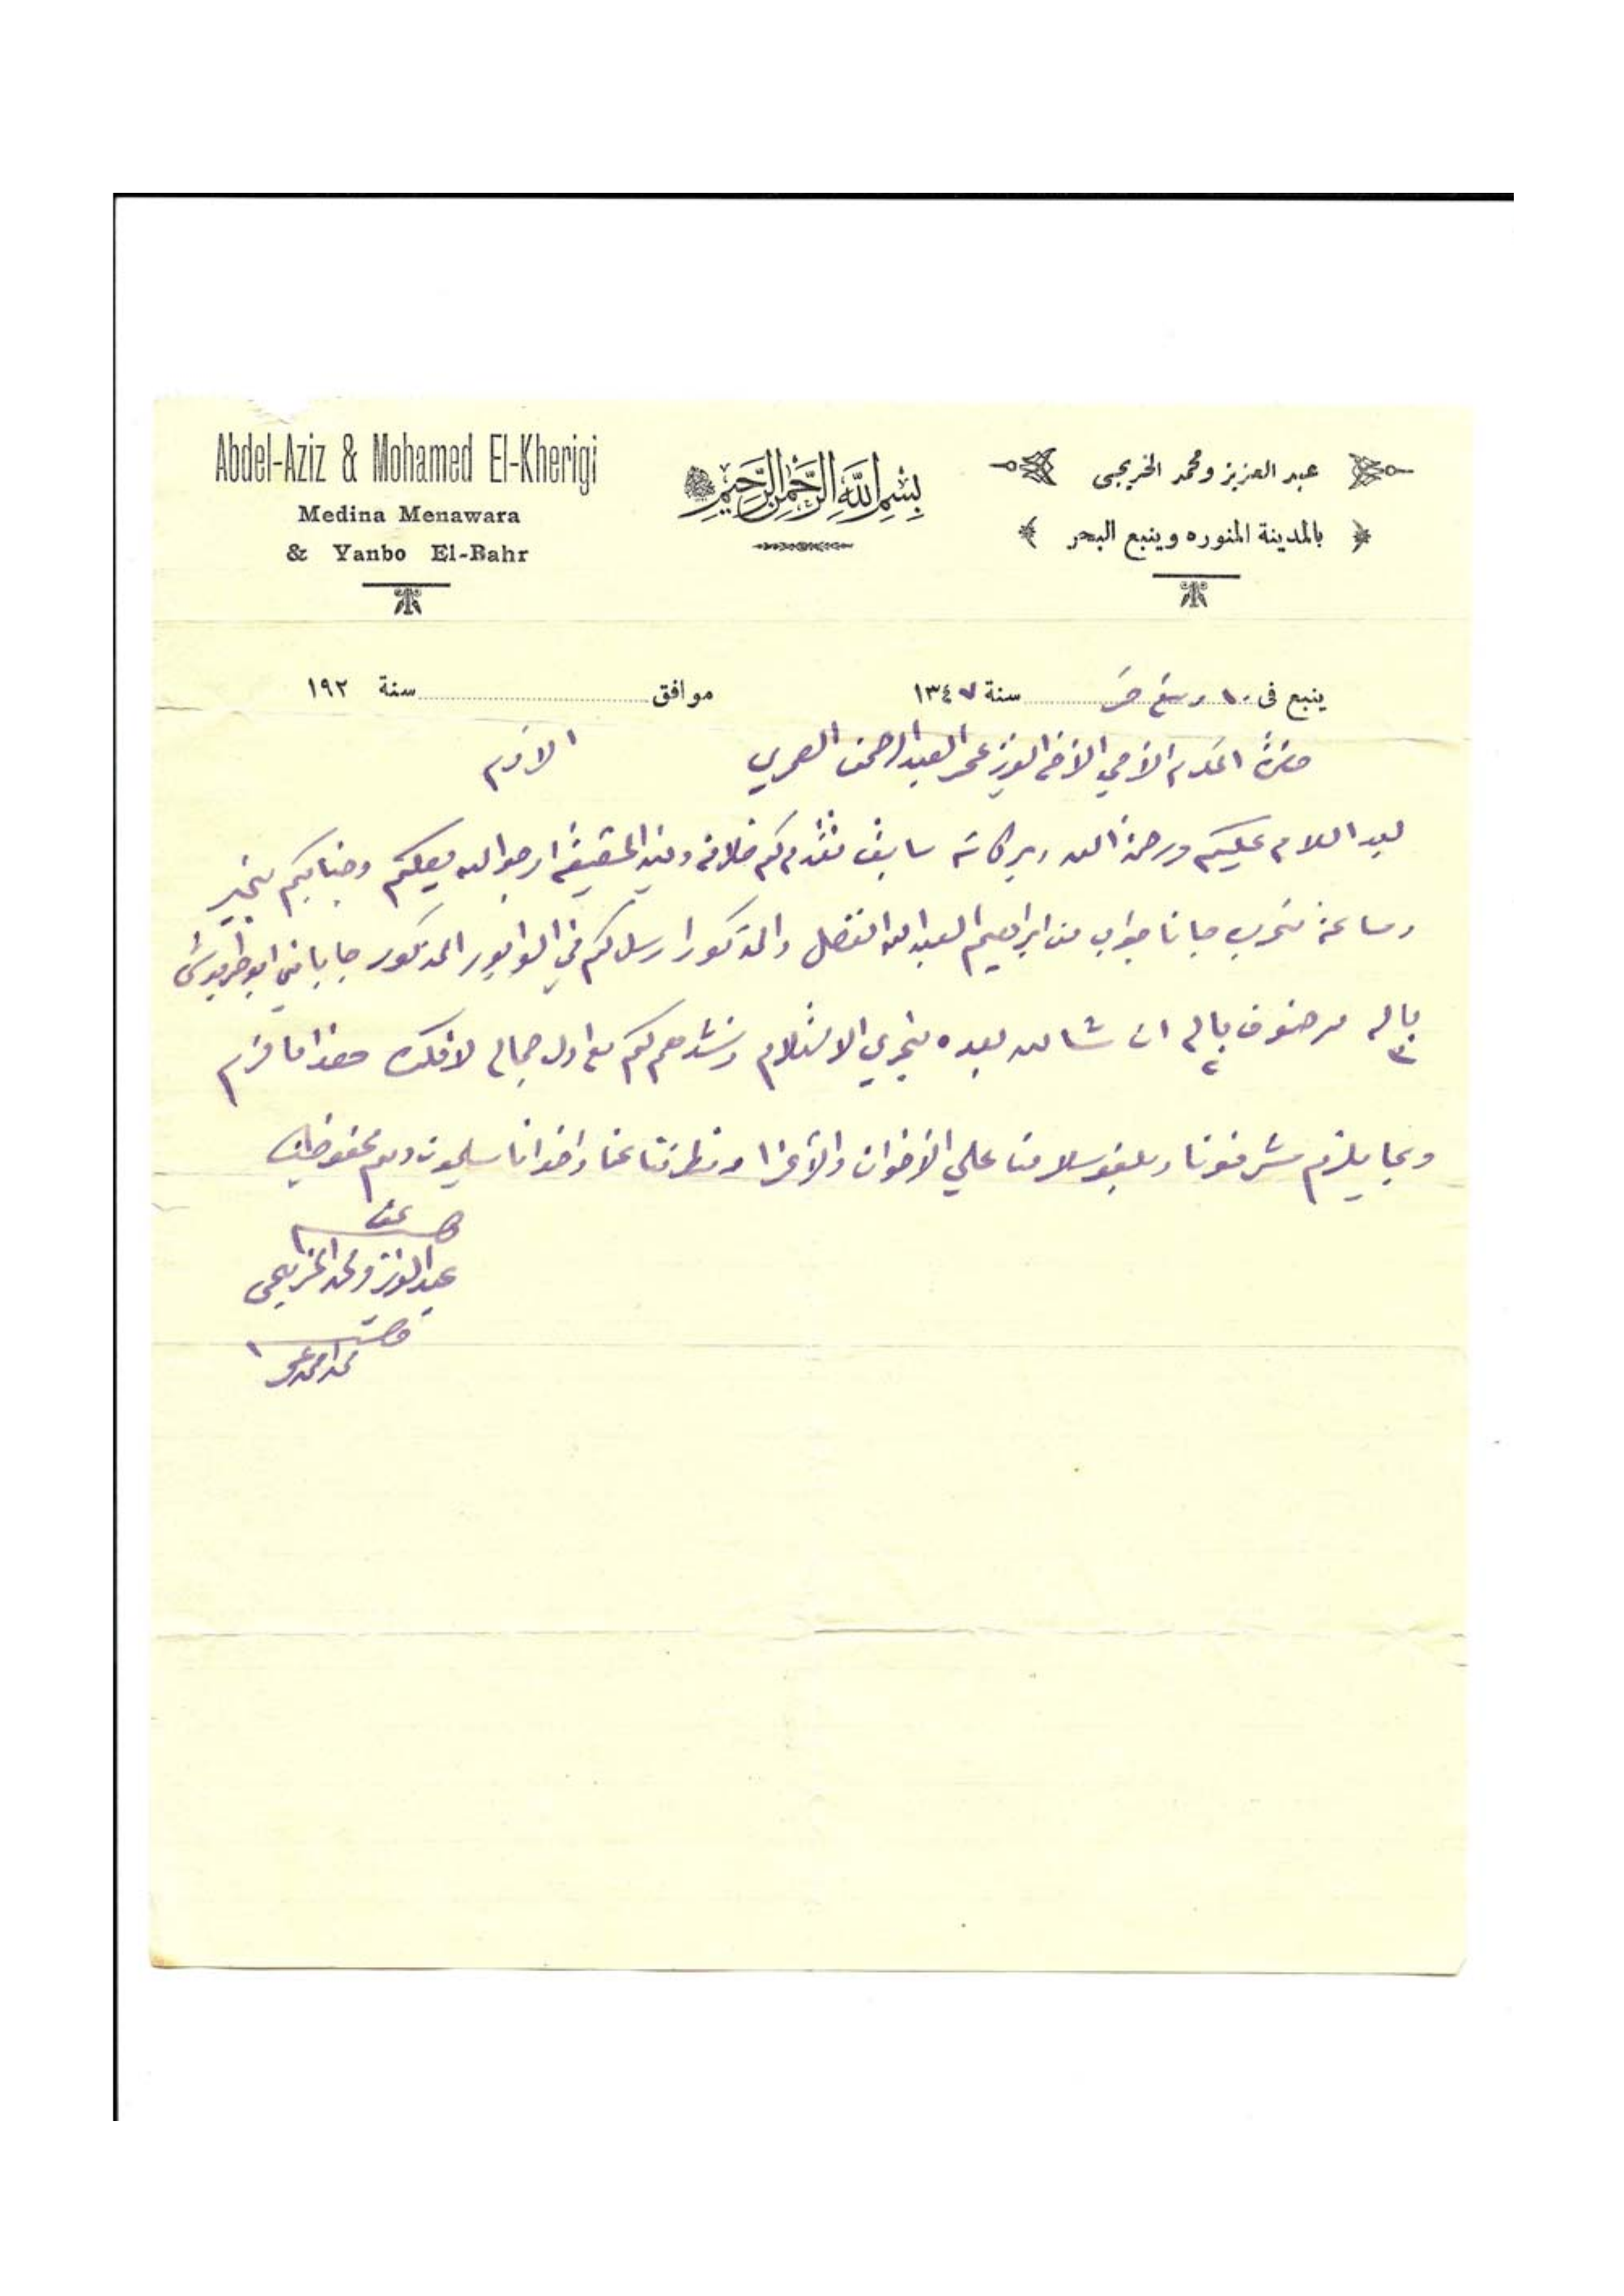 Abdel-Aziz & Mohamed El-Kherigi
Medina Menawara
& Yanbo El-Bahr
بسم الله الرحمن الرحيم
عبد العزيز ومحمد الخريجى
بالمدينة المنوره وينبع البحر
ينبع فى ١٠ ربيع سنة ١٣٤٧ موافق سنة ١٩٢
حضرة المكرم الأخ العزيز عمر العبدالرحمن العمري الافخم
بعد السلام عليكم ورحمة الله وبركاته سابق نقدم لكم خلافه وفيه الحقيقة ارجو الله يصلكم وجنابكم بخير
وساعة جانا جواب من ابراهيم العبدالله الفضل والمذكور ارسل لكم في الوابور المذكور جاباني ابو طربوش
٣ باله مرصوف ٢ باله ان شا الله بعده يجري الاستلام ونشدهم لكم مع اول جماله لافكره هذا ما لزم
وبما يلزم شرفونا وبلغو سلامنا على الأخوان والأعزا ومنطرفنا عنا واخوانا يسلمون ودم محفوظين
عبدالعزيز ومحمد الخريجي